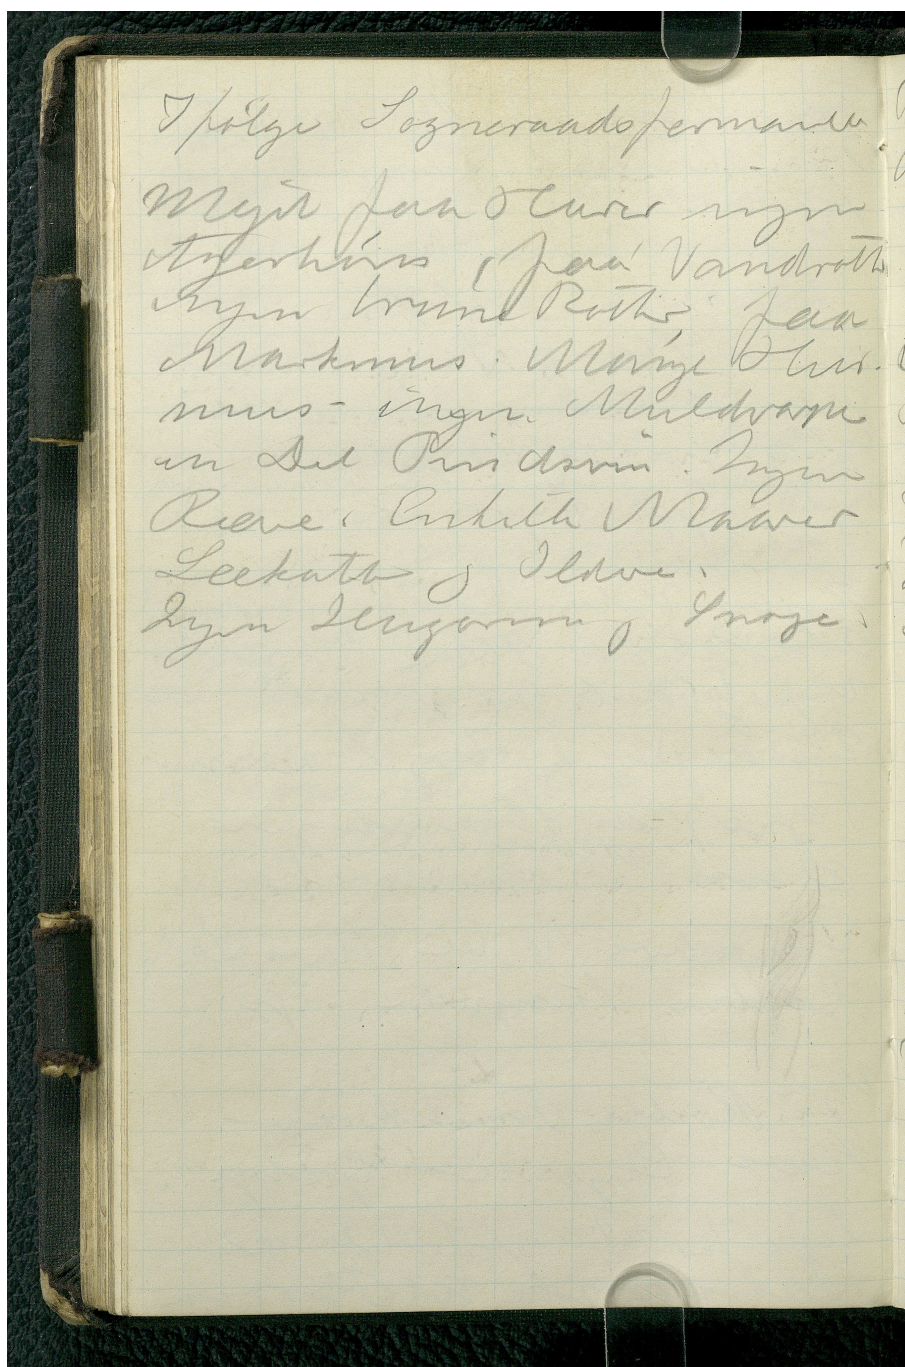 Ifølge Sogneraadsformanden
Meget faa Harer ingen
Agerhøns, faa Vandrotter
ingen brune Rotter, faa
Markmus. Mange Hus-
mus - ingen Muldvarpe
en Del Pindsvin. Ingen
Ræve. Enkelte Maarer
Lækatte og Ildere.
Ingen Hugorme og Snoge.